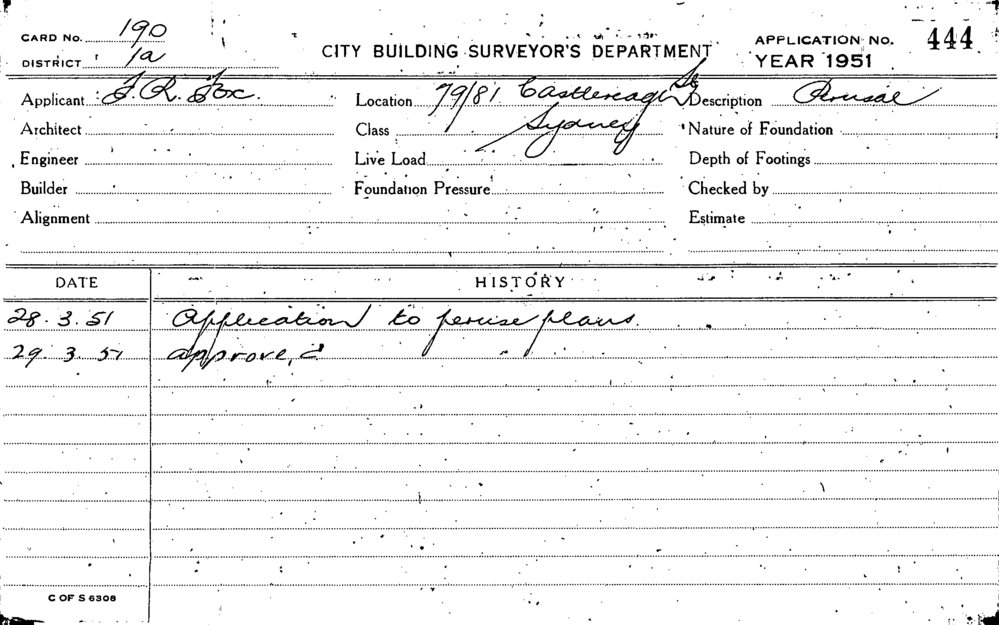 CARD No. 190
DISTRICT 1a
CITY BUILDING SURVEYOR'S DEPARTMENT
APPLICATION No. 444
YEAR 1951
Applicant F. R. Fox. Location 79/81 Castlereagh St Description Perusal
Architect Class Sydney Nature of Foundation
Engineer Live Load Depth of Footings
Builder Foundation Pressure Checked by
Alignment Estimate
DATE HISTORY
28.3.51 Application to peruse plans.
29.3.51 approve,d
C OF S 6308